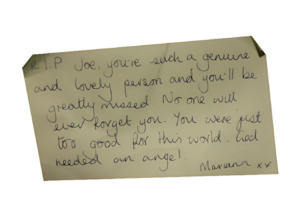 R.I.P Joe, you're such a genuine
and lovely person and you'll be
greatly missed No one will
ever forget you. You were just
too good for this world. God
needed an angel.
Mareann xx